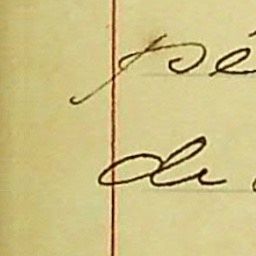 pé
de